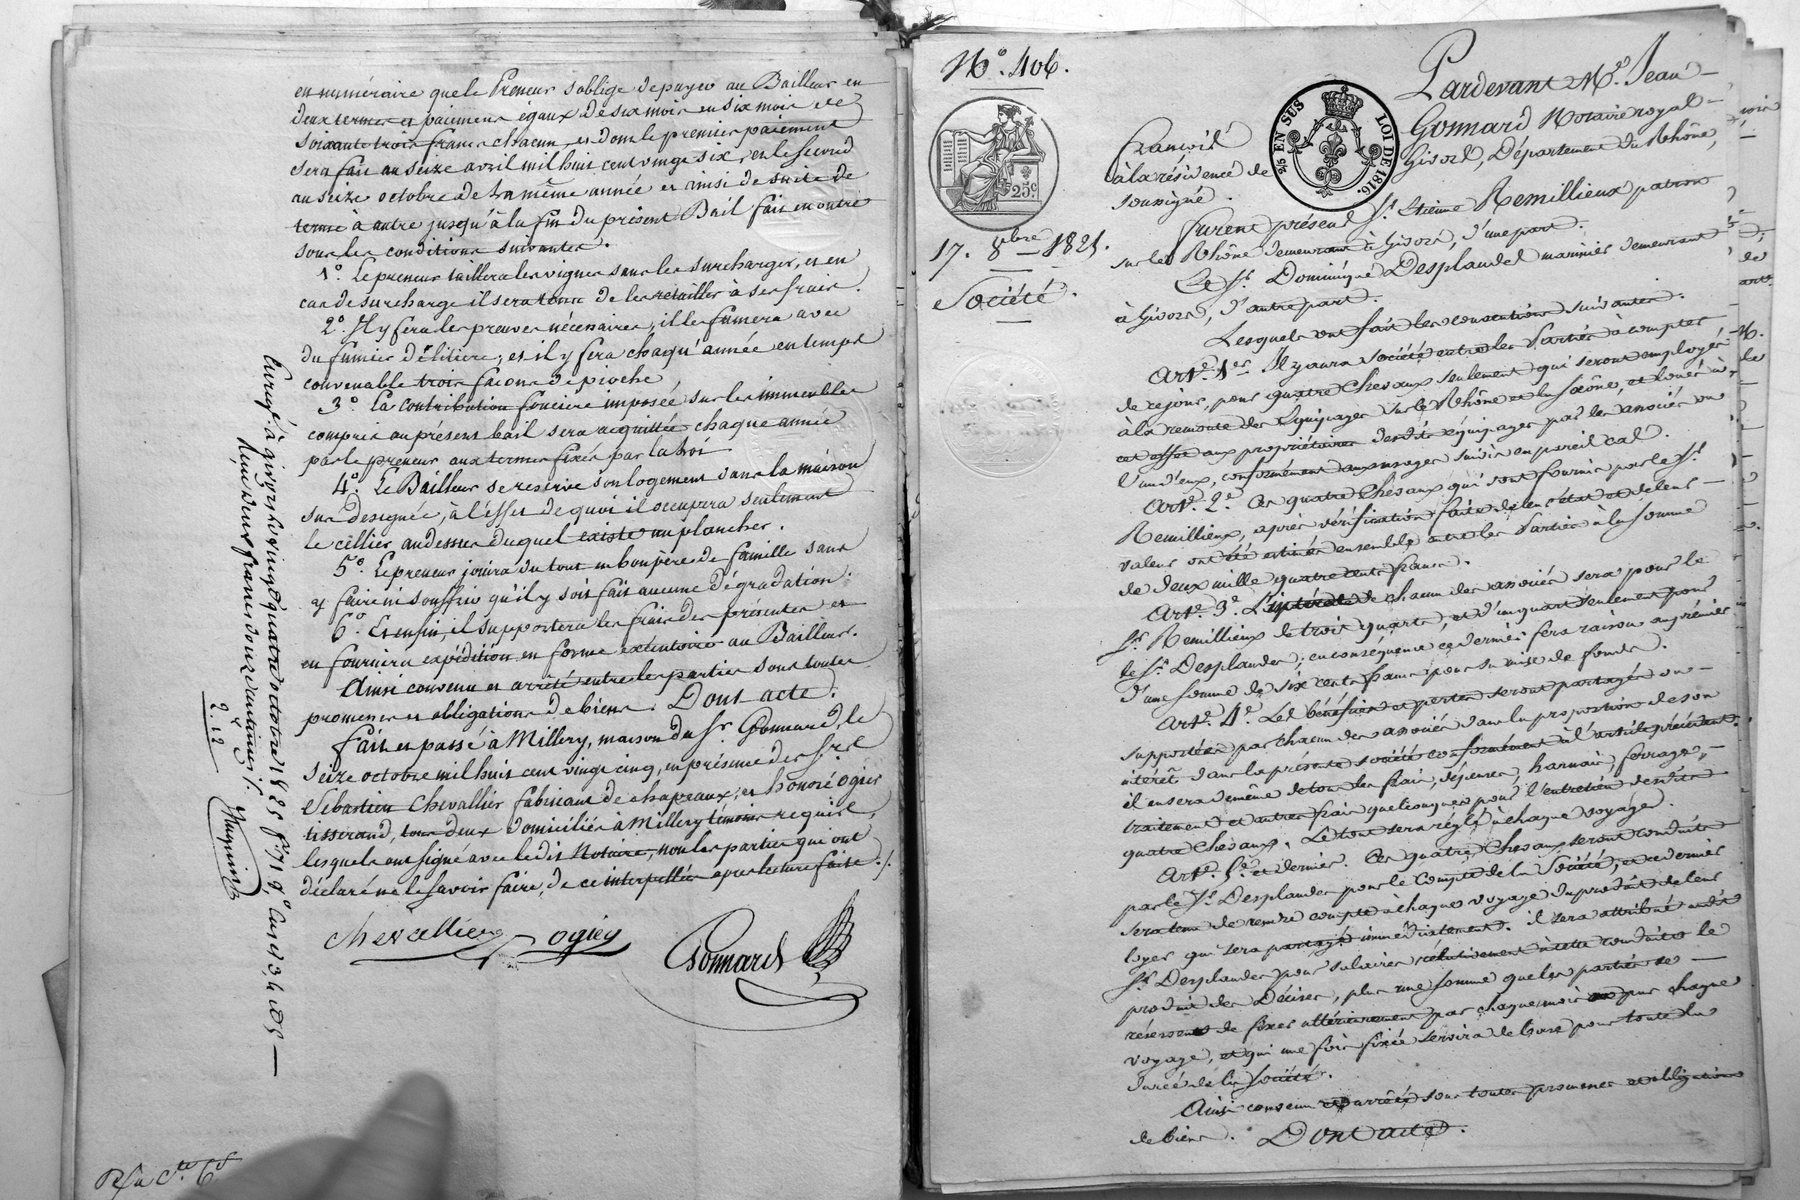 en numéraire que le Preneur s'oblige de payer au Bailleur en
deux termes et paiemens égaux de six mois en six mois de
soixante trois francs chacun, et dont le premier paiement
sera fait au seize avril mil huit cent vingt six, et le second
au seize octobre de la même année et ainsi de suite de
terme à autre jusqu'à la fin du présent Bail fait en outre
sous les conditions suivantes.
1º. Le preneur taillera les vignes sans les surcharger, et en
cas de surcharge il sera tenu de les retailler à ses frais.
2º. Il y fera les preuves nécessaires, il les fumera avec
du fumier de litière; et il y fera chaqu'année en temps
convenable trois façons de pioche
3º. La contribution foncière imposée sur les immeubles
compris au présent bail sera acquittée chaque année
par le preneur aux termes fixés par la loi
4º. Le Bailleur se réserve son logement dans la maison
sus désignée, à l'effet de quoi il occupera seulement
le cellier au dessus duquel existe un plancher.
5º. Le preneur jouira du tout en bon père de famille sans
y faire ni souffrir qu'il y soit fait aucune dégradation.
6º. Et enfin, il supportera les frais des présentes et
en fournira expédition en forme exécutoire au Bailleur.
Ainsi convenu et arrêté entre les parties sous toutes
promesses et obligations de biens. Dont acte.
Fait et passé à Millery, maison du Sr Gonnard, le
seize octobre mil huit cent vingt cinq, en présence des Srs
Sébastien Chevallier fabricant de chapeaux, et honoré Ogier
tisserand, tous deux domiciliés à Millery témoins requis,
lesquels ont signé avec ledit Notaire, non les parties qui ont
déclaré ne le savoir faire, de ce interpellées après lecture faite ./.
chevallier ogier Gonnard
Enregé à givors le vingt quatre octobre 1825 fº 71 Vº cases 3, 4 et 5
Reçu deux francs douze centimes
2.12
Nº. 406.
25c.
17. 8bre 1825.
Société.
2/5 EN SUS LOI DE 1816.
Pardevant Me. Jean
Gonnard Notaire royal
à la résidence de Givors, Département du Rhône,
soussigné.
Furent présens Sr. Etienne Remillieux patron
sur le Rhône demeurant à Givors, d'une part.
Et Sr. Dominique Desplandes marinier demeurant
à Givors, d'autre part.
Lesquels ont fait les conventions suivantes.
Arte. 1er. Il y aura société entre les Parties à compter
de ce jour, pour quatre chevaux seulement qui seront employés
à la remonte des Equipages sur le Rhône et la Saône, et loués à
cet effet aux propriétaires desdits équipages par les associés ou
l'un d'eux, conformément aux usages suivis en pareil cas.
Arte. 2e. Ces quatre chevaux qui sont fournis par le Sr.
Remillieux, après vérification faite de leur état et de leur
valeur ont été estimés ensemble entre les Parties à la somme
de deux mille quatre cents francs.
Arte. 3e. L'intérêt de chacun des associés sera pour le
Sr. Remillieux de trois quarts, et d'un quart seulement pour
le Sr. Desplandes; en conséquence ce dernier fera raison au premier
d'une somme de six cents francs pour sa mise de fonds.
Arte. 4e. Les bénéfices et pertes seront partagés ou
supportés par chacun des associés dans la proportion de son
intérêt dans la présente société conformément à l'article précédent.
il en sera de même de tous les frais, dépenses, harnais, ferrages,
traitement et autres frais quelconques pour l'entretien desdits
quatre chevaux. Le tout sera réglé à chaque voyage.
Arte. 5e. et dernier. Ces quatre chevaux seront conduits
par le Sr. Desplandes pour le compte de la Société, et ce dernier
sera tenu de rendre compte à chaque voyage du produit de leur
loyer qui sera partagé immédiatement. il sera attribué audit
Sr. Desplandes pour salaires relativement à cette conduite le
produit des Décises, plus une somme que les parties se
réservent de fixer ultérieurement par chaque mois ou par chaque
voyage, et qui une fois fixée servira de base pour toute la
durée de la société.
Ainsi convenu et arrêté sous toutes promesses et obligations
de biens. Dont acte.